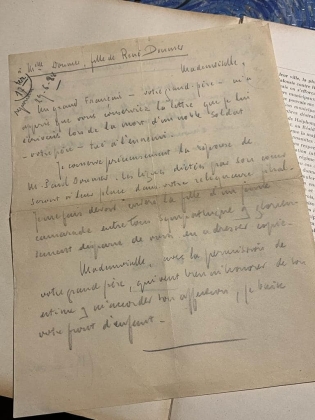 Melle Doumer, fille de René Doumer
Mademoiselle,
Un grand Français – votre grand-père – m'a
appris que vous conserviez la lettre que je lui
écrivis lors de la mort d'un noble soldat
– votre père – tué à l'ennemi.
Je conserve précieusement la réponse de
Mr. Paul Doumer. Les lignes dictées par son cœur
seront à leur place dans votre reliquaire filial.
camarade entre tous sympathique
de vous en adresser copie.
Mademoiselle, avec la permission de
votre grand-père, qui veut bien m'honorer de son
estime et m'accorder son affection, je baise
votre front d'enfant.